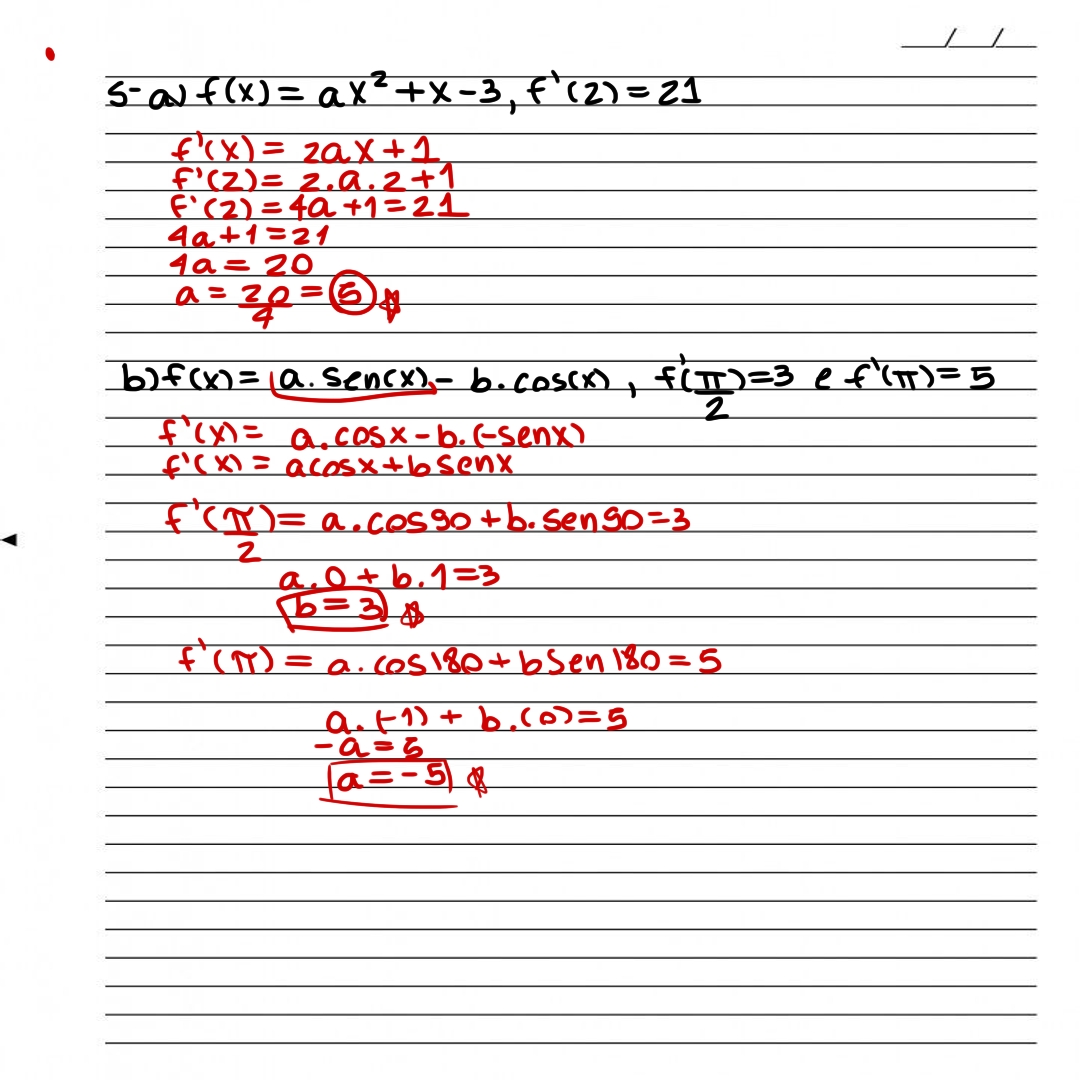 5-a) f(x) = ax² + x - 3, f'(2) = 21
f'(x) = 2ax + 1
f'(2) = 2.a.2 + 1
f'(2) = 4a + 1 = 21
4a + 1 = 21
4a = 20
a = 20/4 = 5
b) f(x) = a.sen(x) - b.cos(x), f'(π/2) = 3 e f'(π) = 5
f'(x) = a.cosx - b.(-senx)
f'(x) = acosx + bsenx
f'(π/2) = a.cos90 + b.sen90 = 3
a.0 + b.1 = 3
b = 3
f'(π) = a.cos180 + bsen180 = 5
a.(-1) + b.(0) = 5
-a = 5
a = -5